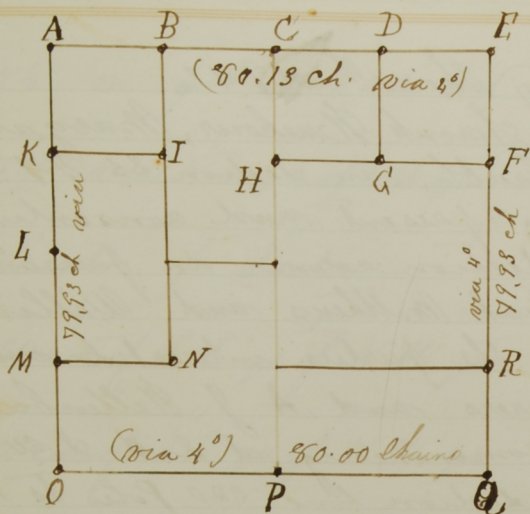 A B C D E
(80.13 ch. via 4°)
K I H G F
L
79,93 ch via
via 4°
79,93 ch
M N R
(via 4°) 80.00 Chains
O P Q